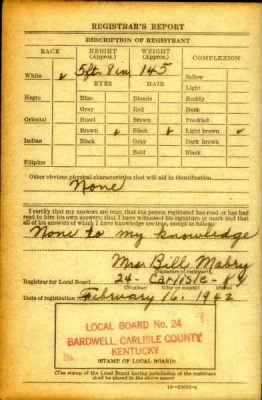 REGISTRAR'S REPORT
DESCRIPTION OF REGISTRANT
RACE HEIGHT (Approx.) WEIGHT (Approx.) COMPLEXION
5 ft. 8 in. 145
White ✓ EYES HAIR Sallow
Light
Negro Blue Blonde Ruddy
Gray Red Dark
Oriental Hazel Brown Freckled
Brown ✓ Black ✓ Light brown ✓
Indian Black Gray Dark brown
Bald Black
Filipino
Other obvious physical characteristics that will aid in identification
None
I certify that my answers are true; that the person registered has read or has had
read to him his own answers; that I have witnessed his signature or mark and that
all of his answers of which I have knowledge are true, except as follows:
None to my knowledge
Mrs. Bill Mabry
(Signature of registrar)
Registrar for Local Board 24 - Carlisle - Ky
(Number) (City or county) (State)
Date of registration February 16, 1942
LOCAL BOARD No. 24
BARDWELL, CARLISLE COUNTY
KENTUCKY
(STAMP OF LOCAL BOARD)
(The stamp of the Local Board having jurisdiction of the registrant
shall be placed in the above space)